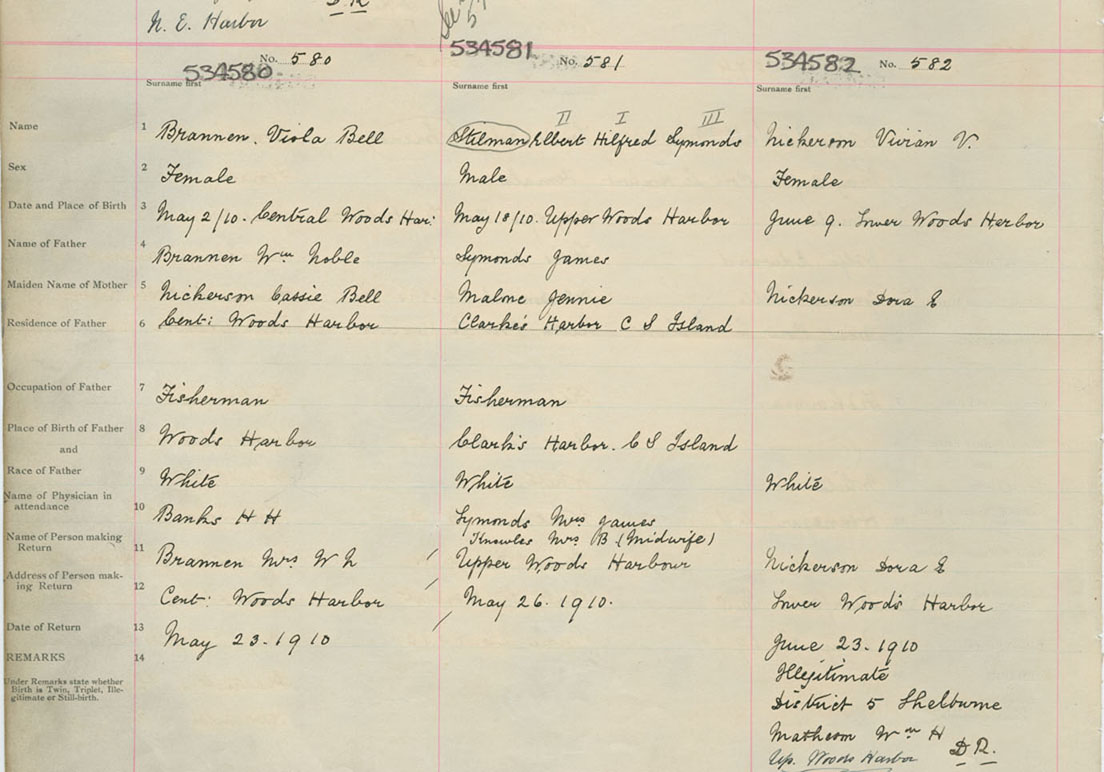 D R
N. E. Harbor
534580 No. 580
Surname first
534581 No. 581
Surname first
534582 No. 582
Surname first
II I III
Name 1 Brannen. Viola Bell Stilman Elbert Hilfred Symonds Nickerson Vivian V.
Sex 2 Female Male Female
Date and Place of Birth 3 May 2/10. Central Woods Har: May 18/10. Upper Woods Harbor June 9. Lower Woods Harbor
Name of Father 4 Brannen Wm Noble Symonds James
Maiden Name of Mother 5 Nickerson Cassie Bell Malone Jennie Nickerson Dora E
Residence of Father 6 Cent: Woods Harbor Clarke's Harbor C S Island
Occupation of Father 7 Fisherman Fisherman
Place of Birth of Father 8 Woods Harbor Clark's Harbor. C S Island
and
Race of Father 9 White White White
Name of Physician in
attendance 10 Banks H H Symonds Mrs James
Knowles Mrs B (Midwife)
Name of Person making
Return 11 Brannen Mrs W N Upper Woods Harbour Nickerson Dora E
Address of Person mak-
ing Return 12 Cent: Woods Harbor May 26. 1910. Lower Woods Harbor
Date of Return 13 May 23. 1910 June 23. 1910
REMARKS 14 Illegitimate
Under Remarks state whether
Birth is Twin, Triplet, Ille-
gitimate or Still-birth.
District 5 Shelburne
Matheson Wm H D R.
Up. Woods Harbor